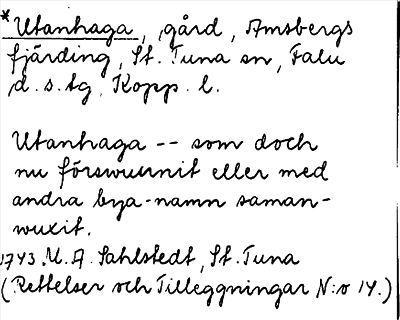 * Utanhaga, gård, Amsbergs
fjärding, St. Tuna sn, Falu
d. s. tg, Kopp. l.
Utanhaga -- som doch
nu förswunnit eller med
andra bya-namn saman-
wuxit.
1743. U. A. Sahlstedt, St. Tuna
(Rettelser och Tilleggningar N:o 14.)